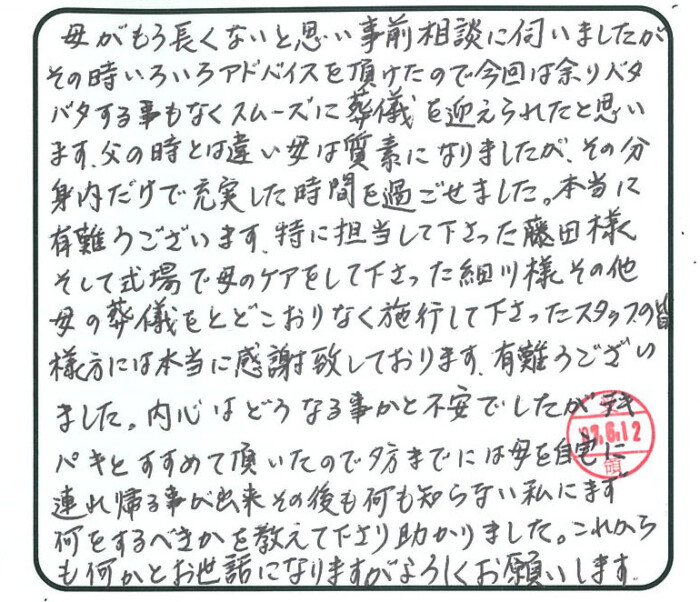 母がもう長くないと思い事前相談に伺いましたが
その時いろいろアドバイスを頂けたので今回は余りバタ
バタする事もなくスムーズに葬儀を迎えられたと思い
ます、父の時とは違い母は質素になりましたが、その分
身内だけで充実した時間を過ごせました。本当に
有難うございます、特に担当して下さった藤田様
そして式場で母のケアをして下さった細川様その他
母の葬儀をとどこおりなく施行して下さったスタッフの皆
様方には本当に感謝致しております、有難うござい
ました。内心はどうなる事かと不安でしたがテキ
パキとすすめて頂いたので夕方までには母を自宅に
連れ帰る事が出来その後も何も知らない私にまず
何をするべきかを教えて下さり助かりました。これから
も何かとお世話になりますがよろしくお願いします。
6.12
領